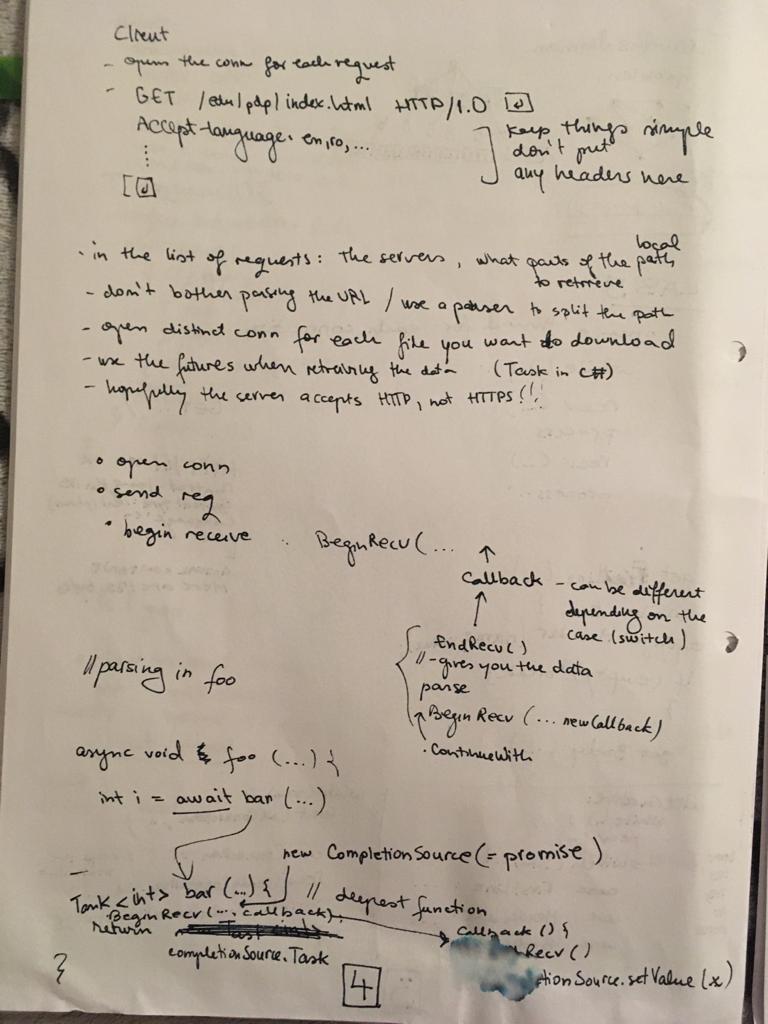 Client
- opens the conn for each request
- GET /edu/pdp/index.html HTTP/1.0 [↵]
Accept-language: en,ro,...
keep things simple
don't put
any headers here
[↵]
- in the list of requests: the servers, what parts of the local path
to retrieve
- don't bother parsing the URL / use a parser to split the path
- open distinct conn for each file you want to download
- use the futures when retrieving the data (Task in C#)
- hopefully the server accepts HTTP, not HTTPS!!
• open conn
• send req
• begin receive : BeginRecv(...
Callback - can be different
depending on the
case (switch)
EndRecv()
// - gives you the data
parse
BeginRecv (... newCallback)
. ContinueWith
//parsing in foo
async void foo (...) {
int i = await bar (...)
new CompletionSource (= promise)
Task<int> bar (...) { // deepest function
BeginRecv (... callback);
return
completionSource.Task
}
Callback () {
Recv ()
tionSource.setValue (x)
4